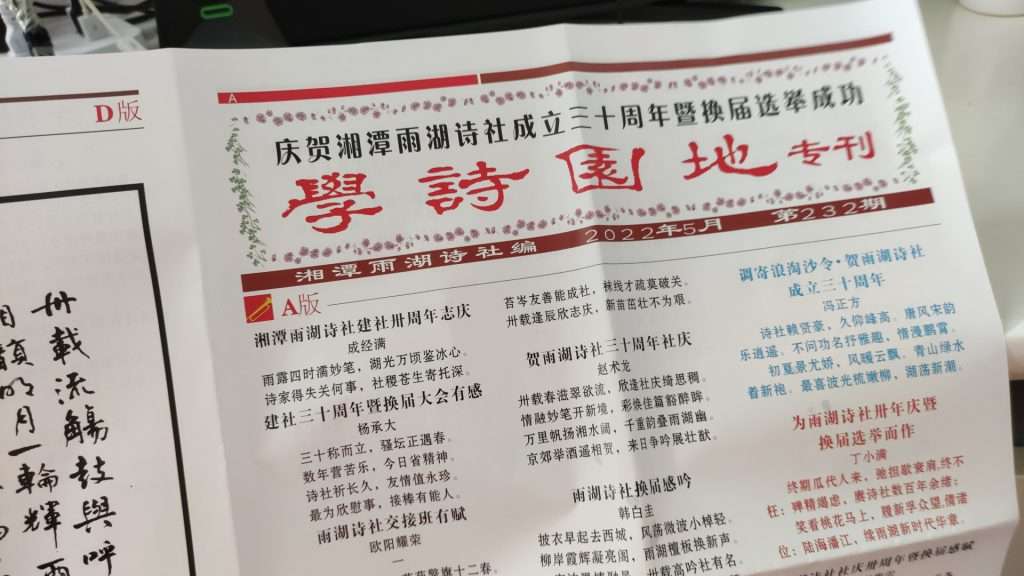 D版
卅載流觴鼓與呼
明月一輪輝
A
庆贺湘潭雨湖诗社成立三十周年暨换届选举成功
學詩園地专刊
湘潭雨湖诗社编 2022年5月 第232期
A版
湘潭雨湖诗社建社卅周年志庆
成经满
雨露四时濡妙笔，湖光万顷鉴冰心。
诗家得失关何事，社稷苍生寄托深。
建社三十周年暨换届大会有感
杨承大
三十称而立，骚坛正遇春。
数年营苦乐，今日省精神。
诗社祈长久，友情值永珍。
最为欣慰事，接棒有能人。
雨湖诗社交接班有赋
欧阳耀荣
一
苔岑友善能成社，袜线才疏莫破关。
卅载逢辰欣志庆，新苗茁壮不为艰。
贺雨湖诗社三十周年社庆
赵术龙
卅载春滋翠欲流，欣逢社庆绮思稠。
情融妙笔开新境，彩焕佳篇豁醉眸。
万里帆扬湘水阔，千重韵叠雨湖幽。
京郊举酒遥相贺，来日争吟展壮猷。
雨湖诗社换届感吟
韩白圭
披衣早起去西城，风荡微波小棹轻。
柳岸霞辉凝亮阁，雨湖檀板换新声。
卅载高吟社有名。
调寄浪淘沙令·贺雨湖诗社
成立三十周年
冯正方
诗社赖贤豪，久仰峰高。唐风宋韵
乐逍遥。不问功名抒雅趣，情漫鹏霄。
初夏景尤娇，风暖云飘。青山绿水
着新袍。最喜波光梳嫩柳，湖荡新潮。
为雨湖诗社卅年庆暨
换届选举而作
丁小满
终期瓜代人来，弛担歇衰肩，终不
枉：殚精竭虑，赓诗社数百年余绪；
笑看桃花马上，履新孚众望，倩诺
位：陆海潘江，续雨湖新时代华章。
社庆卅周年暨换届感赋